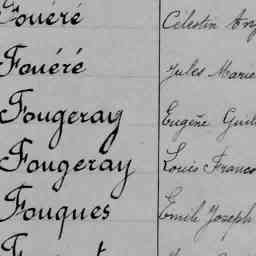 Fouéré Célestin
Fouéré Jules Marie
Fougeray Eugène
Fougeray Louis
Fouques Emile Joseph